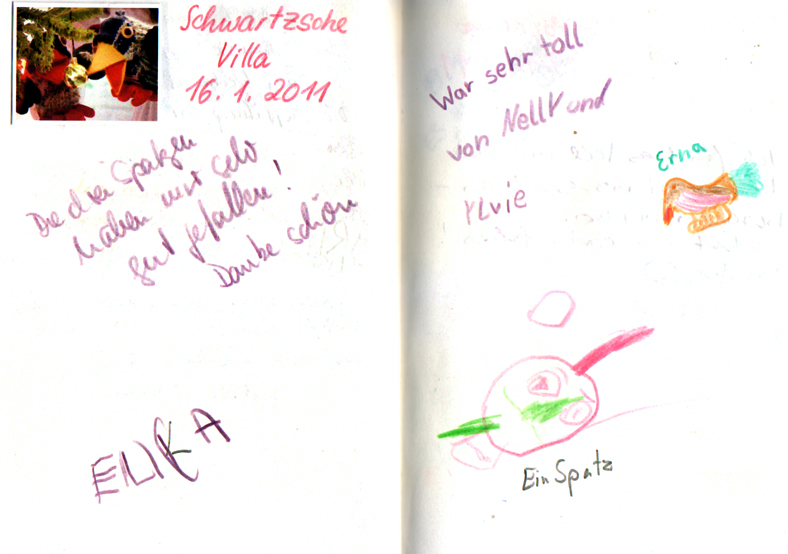 Schwartzsche
Villa
16. 1. 2011
Die drei Spatzen
haben mir sehr
gut gefallen!
Danke schön
War sehr toll
von Nelly und
YLvie
Erna
Ein Spatz